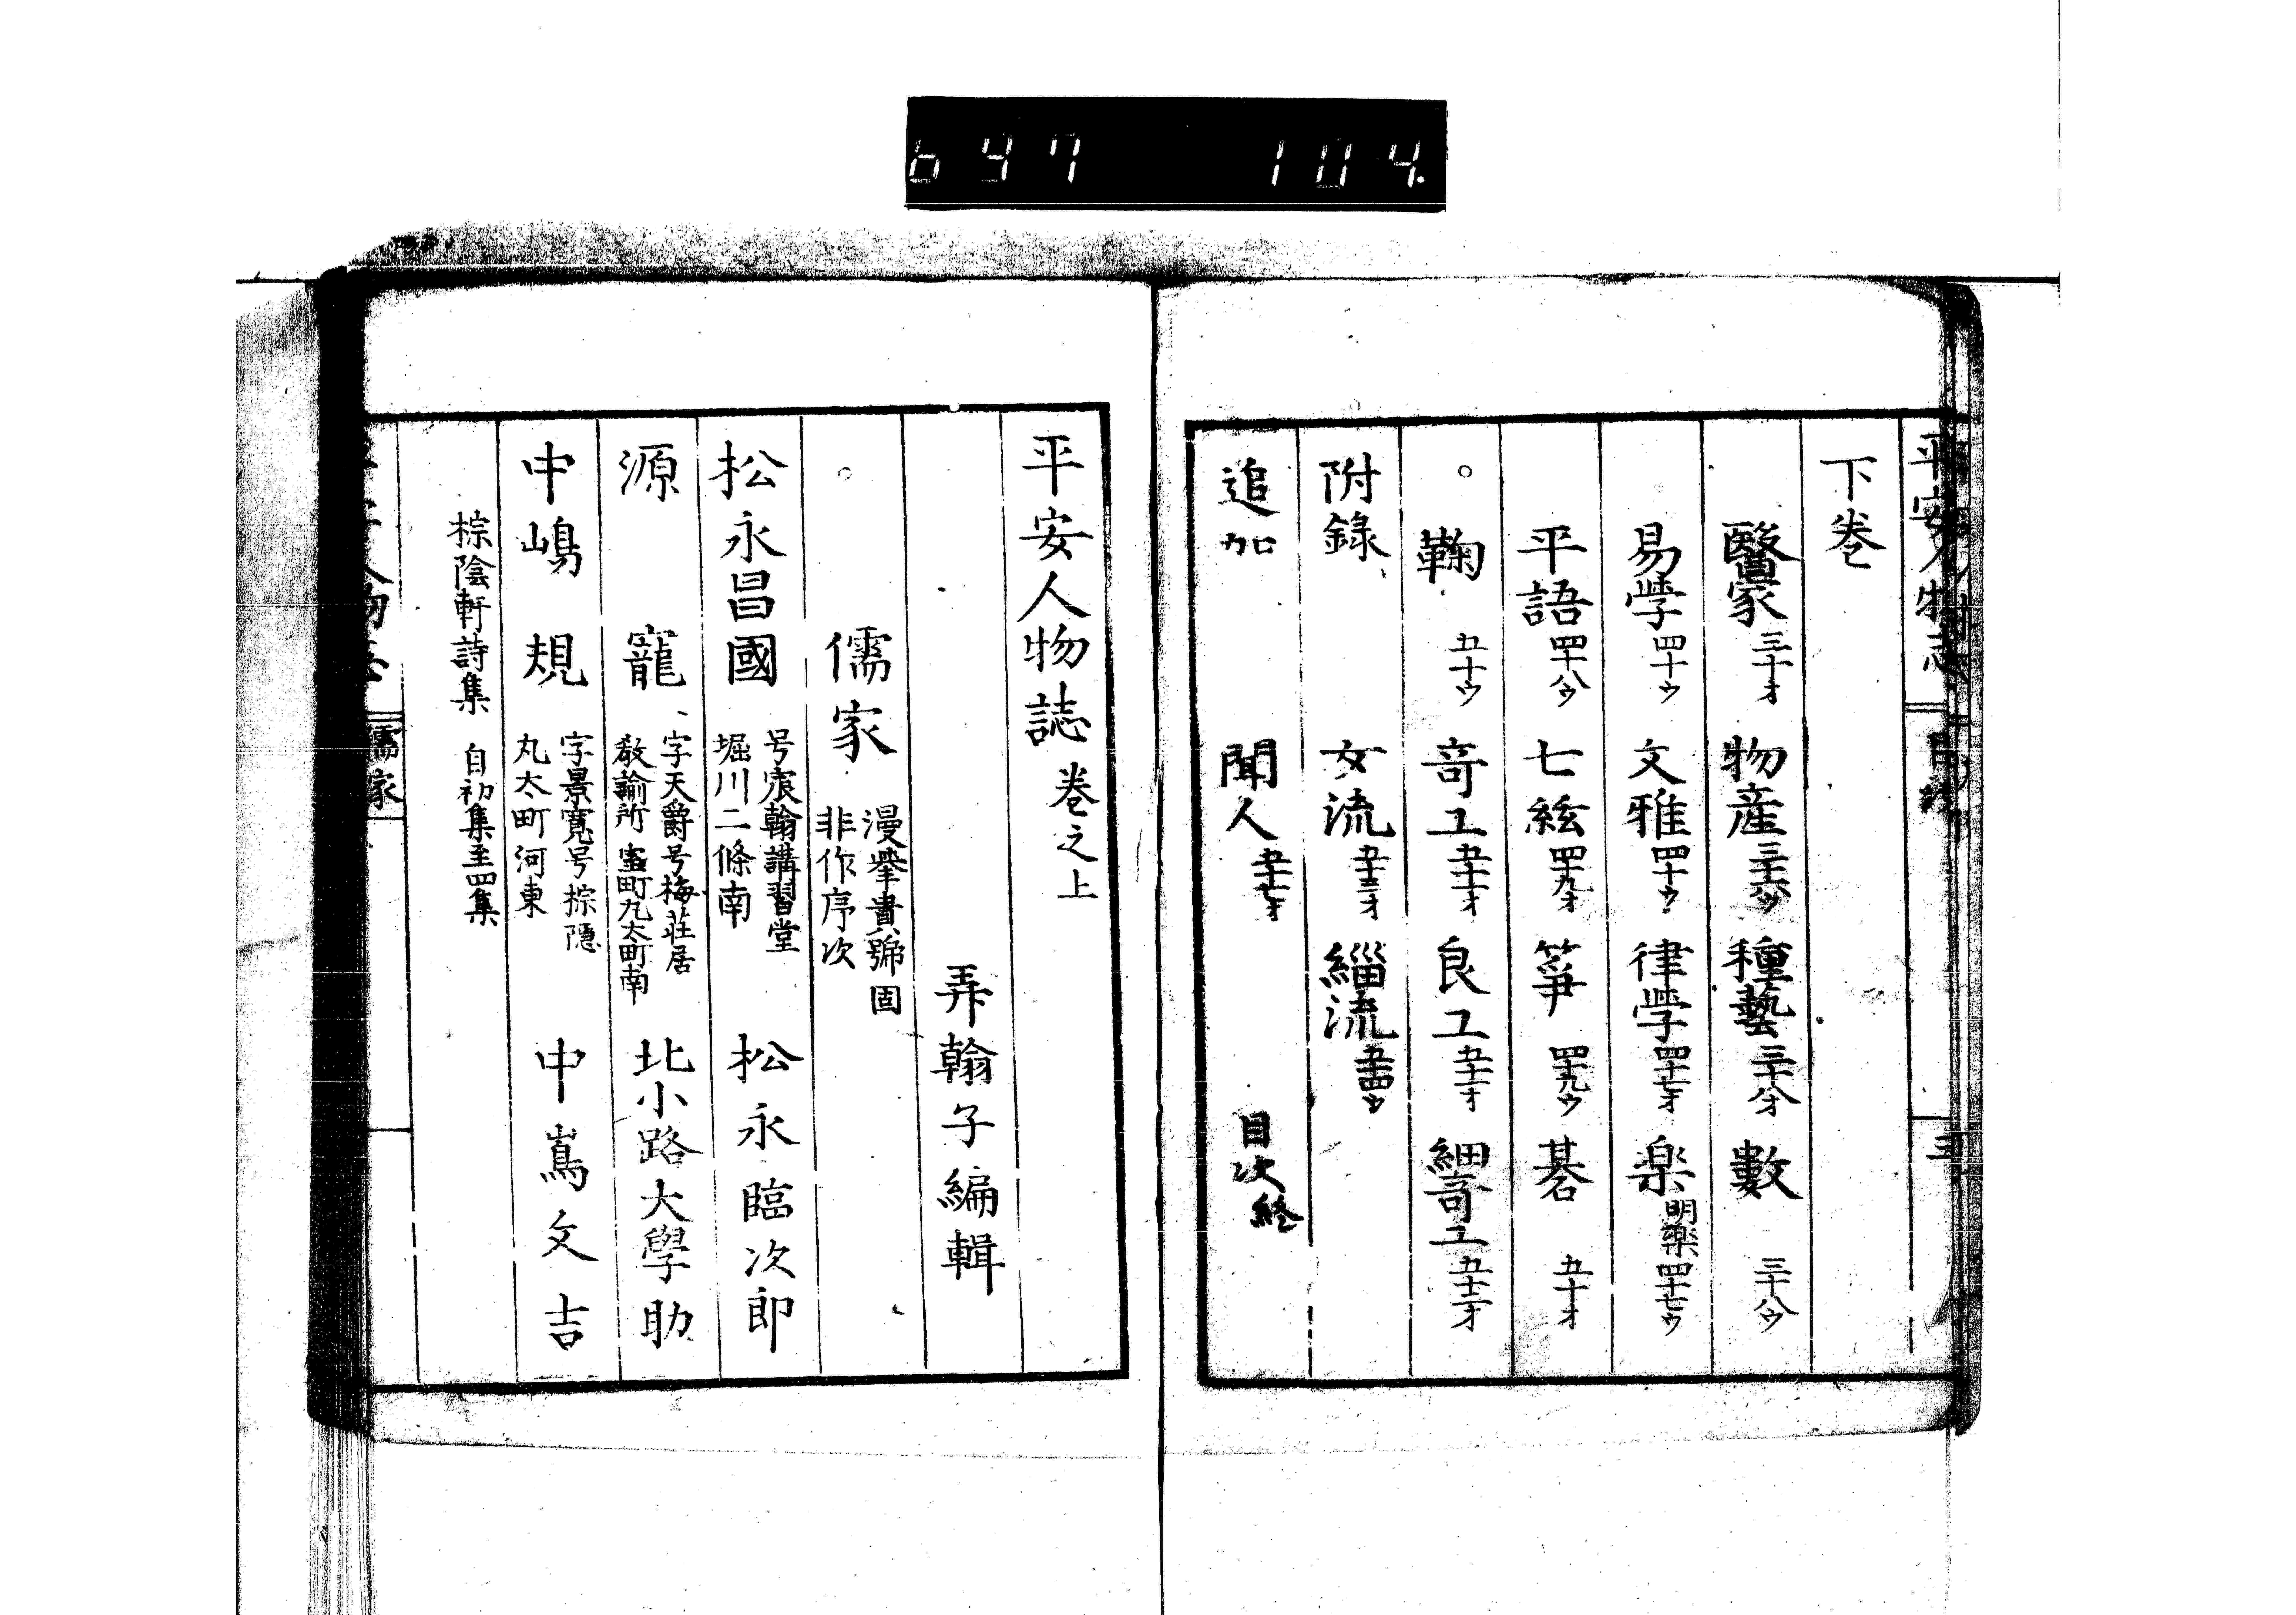 647 104
平安人物志
三
下巻
醫家三十オ 物産三十六ウ 種藝三十八オ 數三十八ウ
易学四十ウ 文雅四十ウ 律学四十七オ 楽明樂四十七ウ
平語四十八ウ 七絃四十九オ 箏四十九ウ 碁五十オ
○鞠五十ウ 竒工五十一オ 良工五十一オ 細竒工五十二オ
附録 女流五十三オ 緇流五十四ウ
追加 聞人五十七オ 目次終
平安人物誌巻之上
弄翰子編輯
○儒家
漫擧書號固
非作序次
松永昌國
号宸翰講習堂
堀川二條南
松永臨次郎
源 寵
字天爵号梅荘居
教諭所室町丸太町南
北小路大學助
中嶋 規
字景寛号棕隠
丸太町河東
中嶌文吉
棕陰軒詩集 自初集至四集
儒家